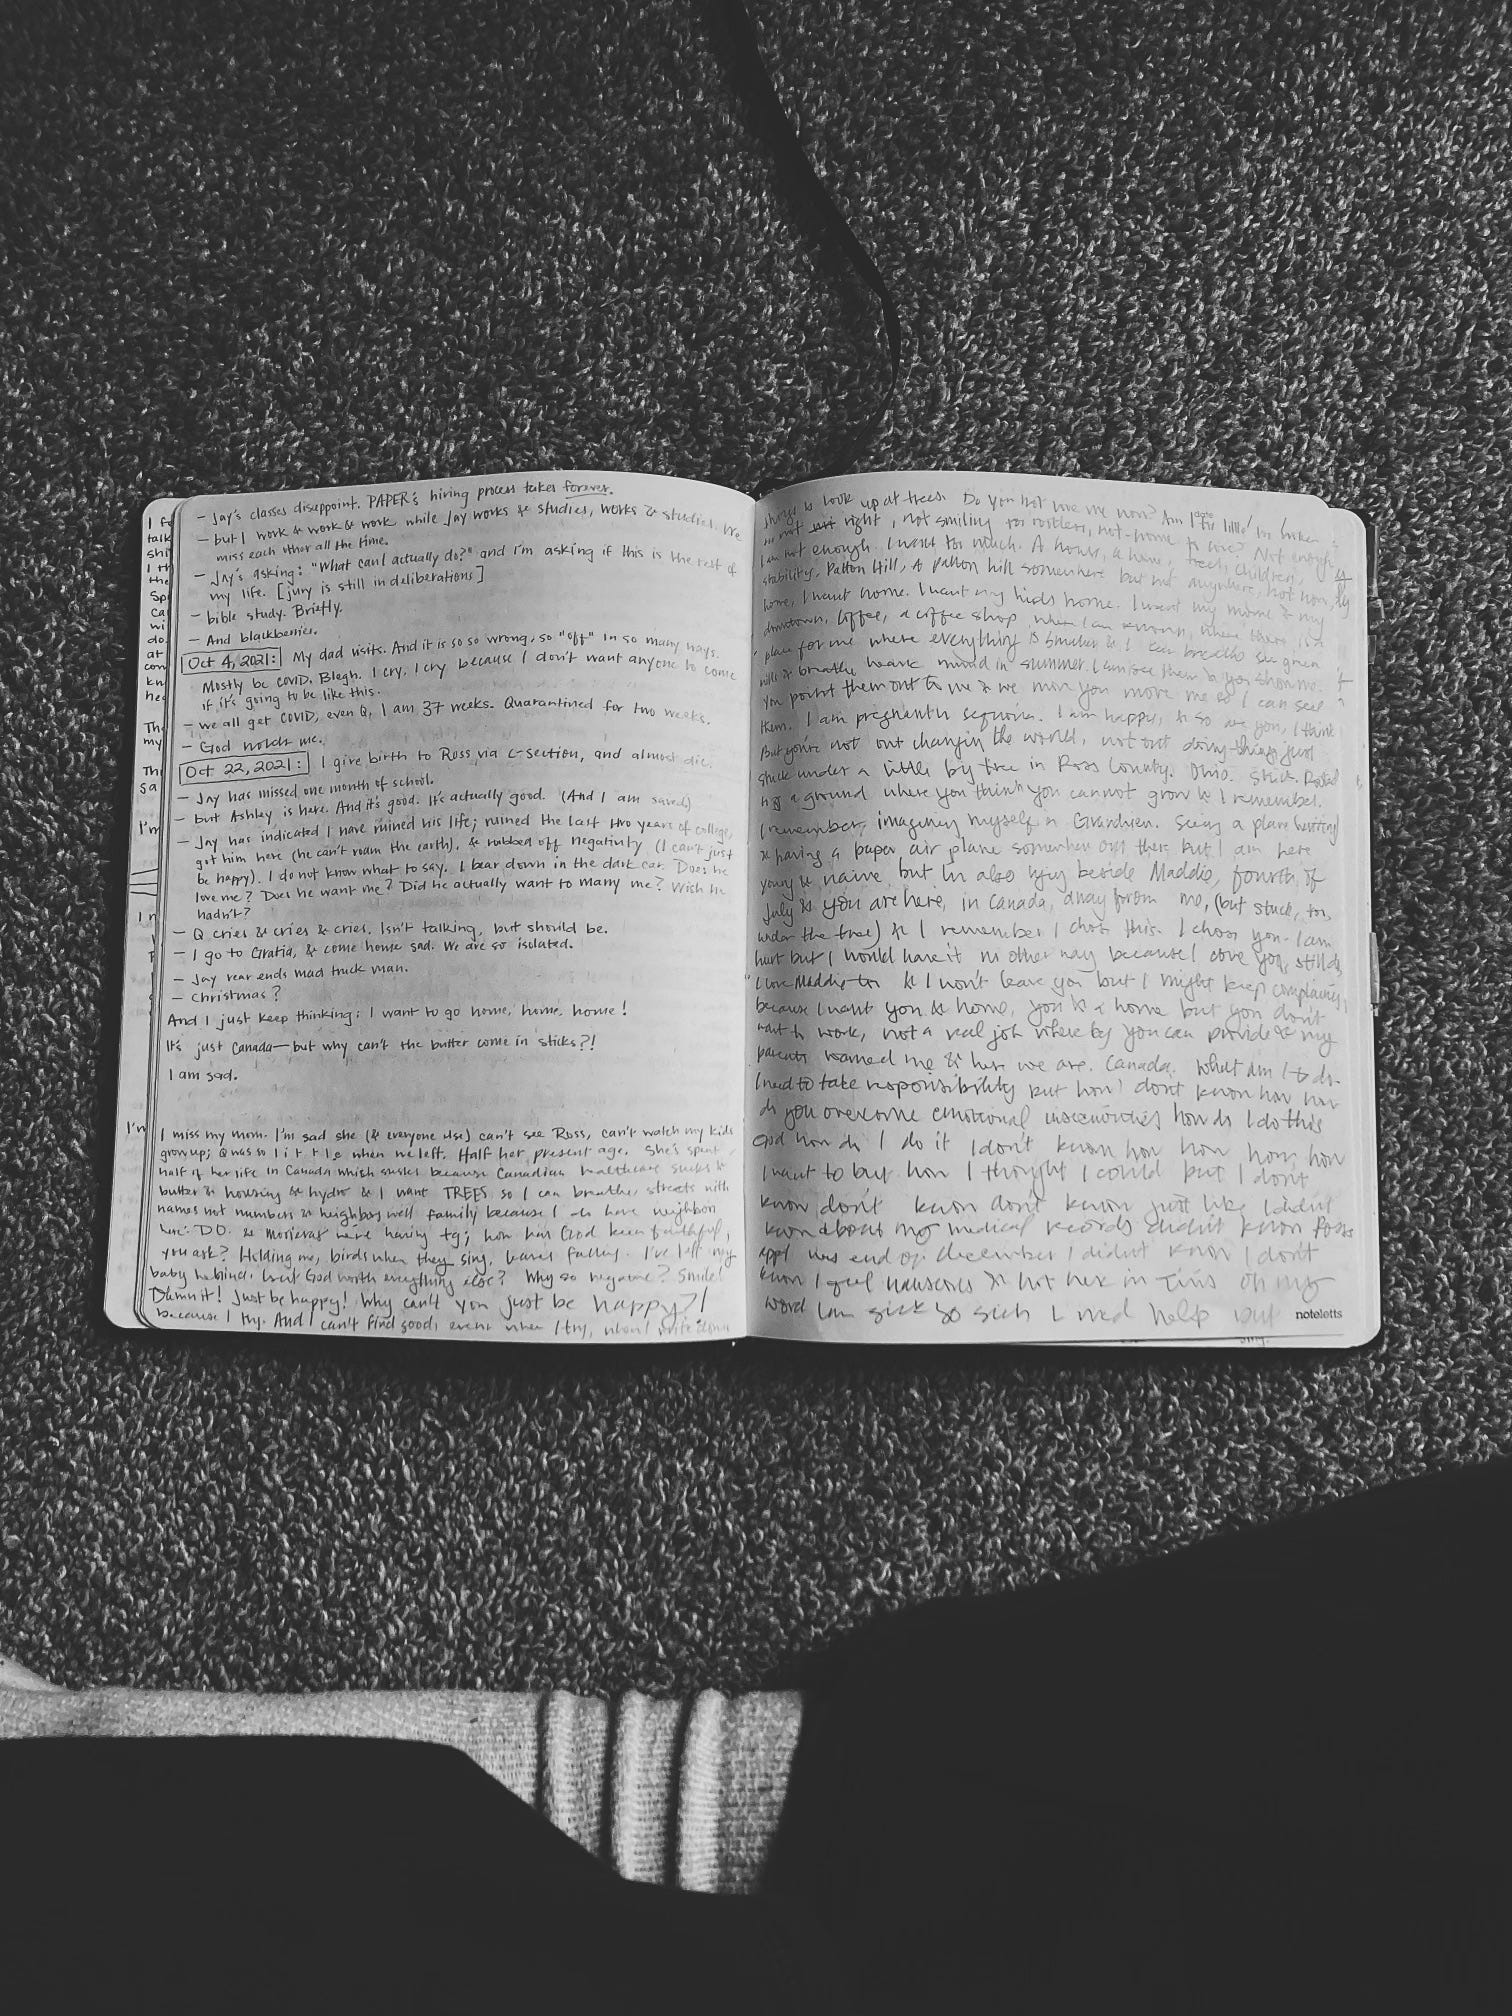 - Jay's classes disappoint. PAPER's hiring process takes forever.
- but I work & work & work while Jay works & studies, works & studies. We
miss each other all the time.
- Jay's asking: "What can I actually do?" and I'm asking if this is the rest of
my life. [jury is still in deliberations]
- bible study. Briefly.
- And blackberries.
Oct 4, 2021: My dad visits. And it is so so wrong, so "off" in so many ways.
Mostly bc COVID. Blegh. I cry, I cry because I don't want anyone to come
if it's going to be like this.
- we all get COVID, even Q, I am 37 weeks. Quarantined for two weeks.
- God holds me.
Oct 22, 2021: I give birth to Ross via c-section, and almost die.
- Jay has missed one month of school.
- but Ashley is here. And it's good. It's actually good. (And I am saved)
- Jay has indicated I have ruined his life; ruined the last two years of college,
got him here (he can't roam the earth), & rubbed off negativity (I can't just
be happy). I do not know what to say. I bear down in the dark car. Does he
love me? Does he want me? Did he actually want to marry me? Wish he
hadn't?
- Q cries & cries & cries. Isn't talking, but should be.
- I go to Gratia, & come home sad. We are so isolated.
- Jay rear ends mad truck man.
- Christmas?
And I just keep thinking: I want to go home, home, home!
It's just Canada—but why can't the butter come in sticks?!
I am sad.
I miss my mom. I'm sad she (& everyone else) can't see Ross, can't watch my kids
grow up; Q was so little when we left. Half her present age. She's spent
half of her life in Canada which sucks because Canadian healthcare sucks &
butter & housing & hydro & I want TREES so I can breathe, streets with
names not numbers & neighbors well family because I do have neighbor
here: DO. & here having tg; how has God been faithful,
you ask? Holding me, birds when they sing, leaves falling. I've left my
baby behind. Isn't God worth everything else? Why so negative? Smile!
Damn it! Just be happy! Why can't you just be happy?!
because I try. And I can't find good, even when I try, when I write down
things & look up at trees. Do you not love me now? Am I too little? I'm broken
not right, not smiling too restless, not-home to core? Not enough
I am not enough. I want too much. A home, a home, trees, children,
stability, Patton Hill, a patton hill somewhere but not anywhere, not now,
home, I want home. I want my kids home. I want my mom & my
downtown, coffee, a coffee shop where I am known, where there is a
place for me where everything is smaller & I can breathe see green
hills & breathe in summer. I can see them & you show me.
You point them out to me & we you move me so I can see
them. I am pregnant sequoia. I am happy, & so are you, I think
But you're not out changing the world, not out doing-things just
stuck under a little tree in Ross County. Ohio. Stuck. Rooted
in a ground where you think you cannot grow & I remember.
I remember, imagining myself a Guardian. Seeing a plane
& having a paper air plane somewhere out there but I am here
young & naive but I'm also lying beside Maddie, fourth of
July & you are here, in Canada, away from me, (but stuck, too,
under the tree) & I remember I chose this. I chose you. I am
hurt but I would have it no other way because I love you, still do,
I love Maddie too & I won't leave you but I might keep complaining,
because I want you & home, you & a home but you don't
want to work, not a real job where you can provide & my
parents warned me & here we are. Canada. What am I to do.
I need to take responsibility but how I don't know how how
do you overcome emotional insecurities how do I do this
God how do I do it I don't know how how how, how
I want to but how I thought I could but I don't
know don't know don't know just like I didn't
know about my medical records didn't know Ross
appt was end of december I didn't know I don't
know I feel nauseous & hot here in this oh my
word I am sick so sick I need help but
noteletts